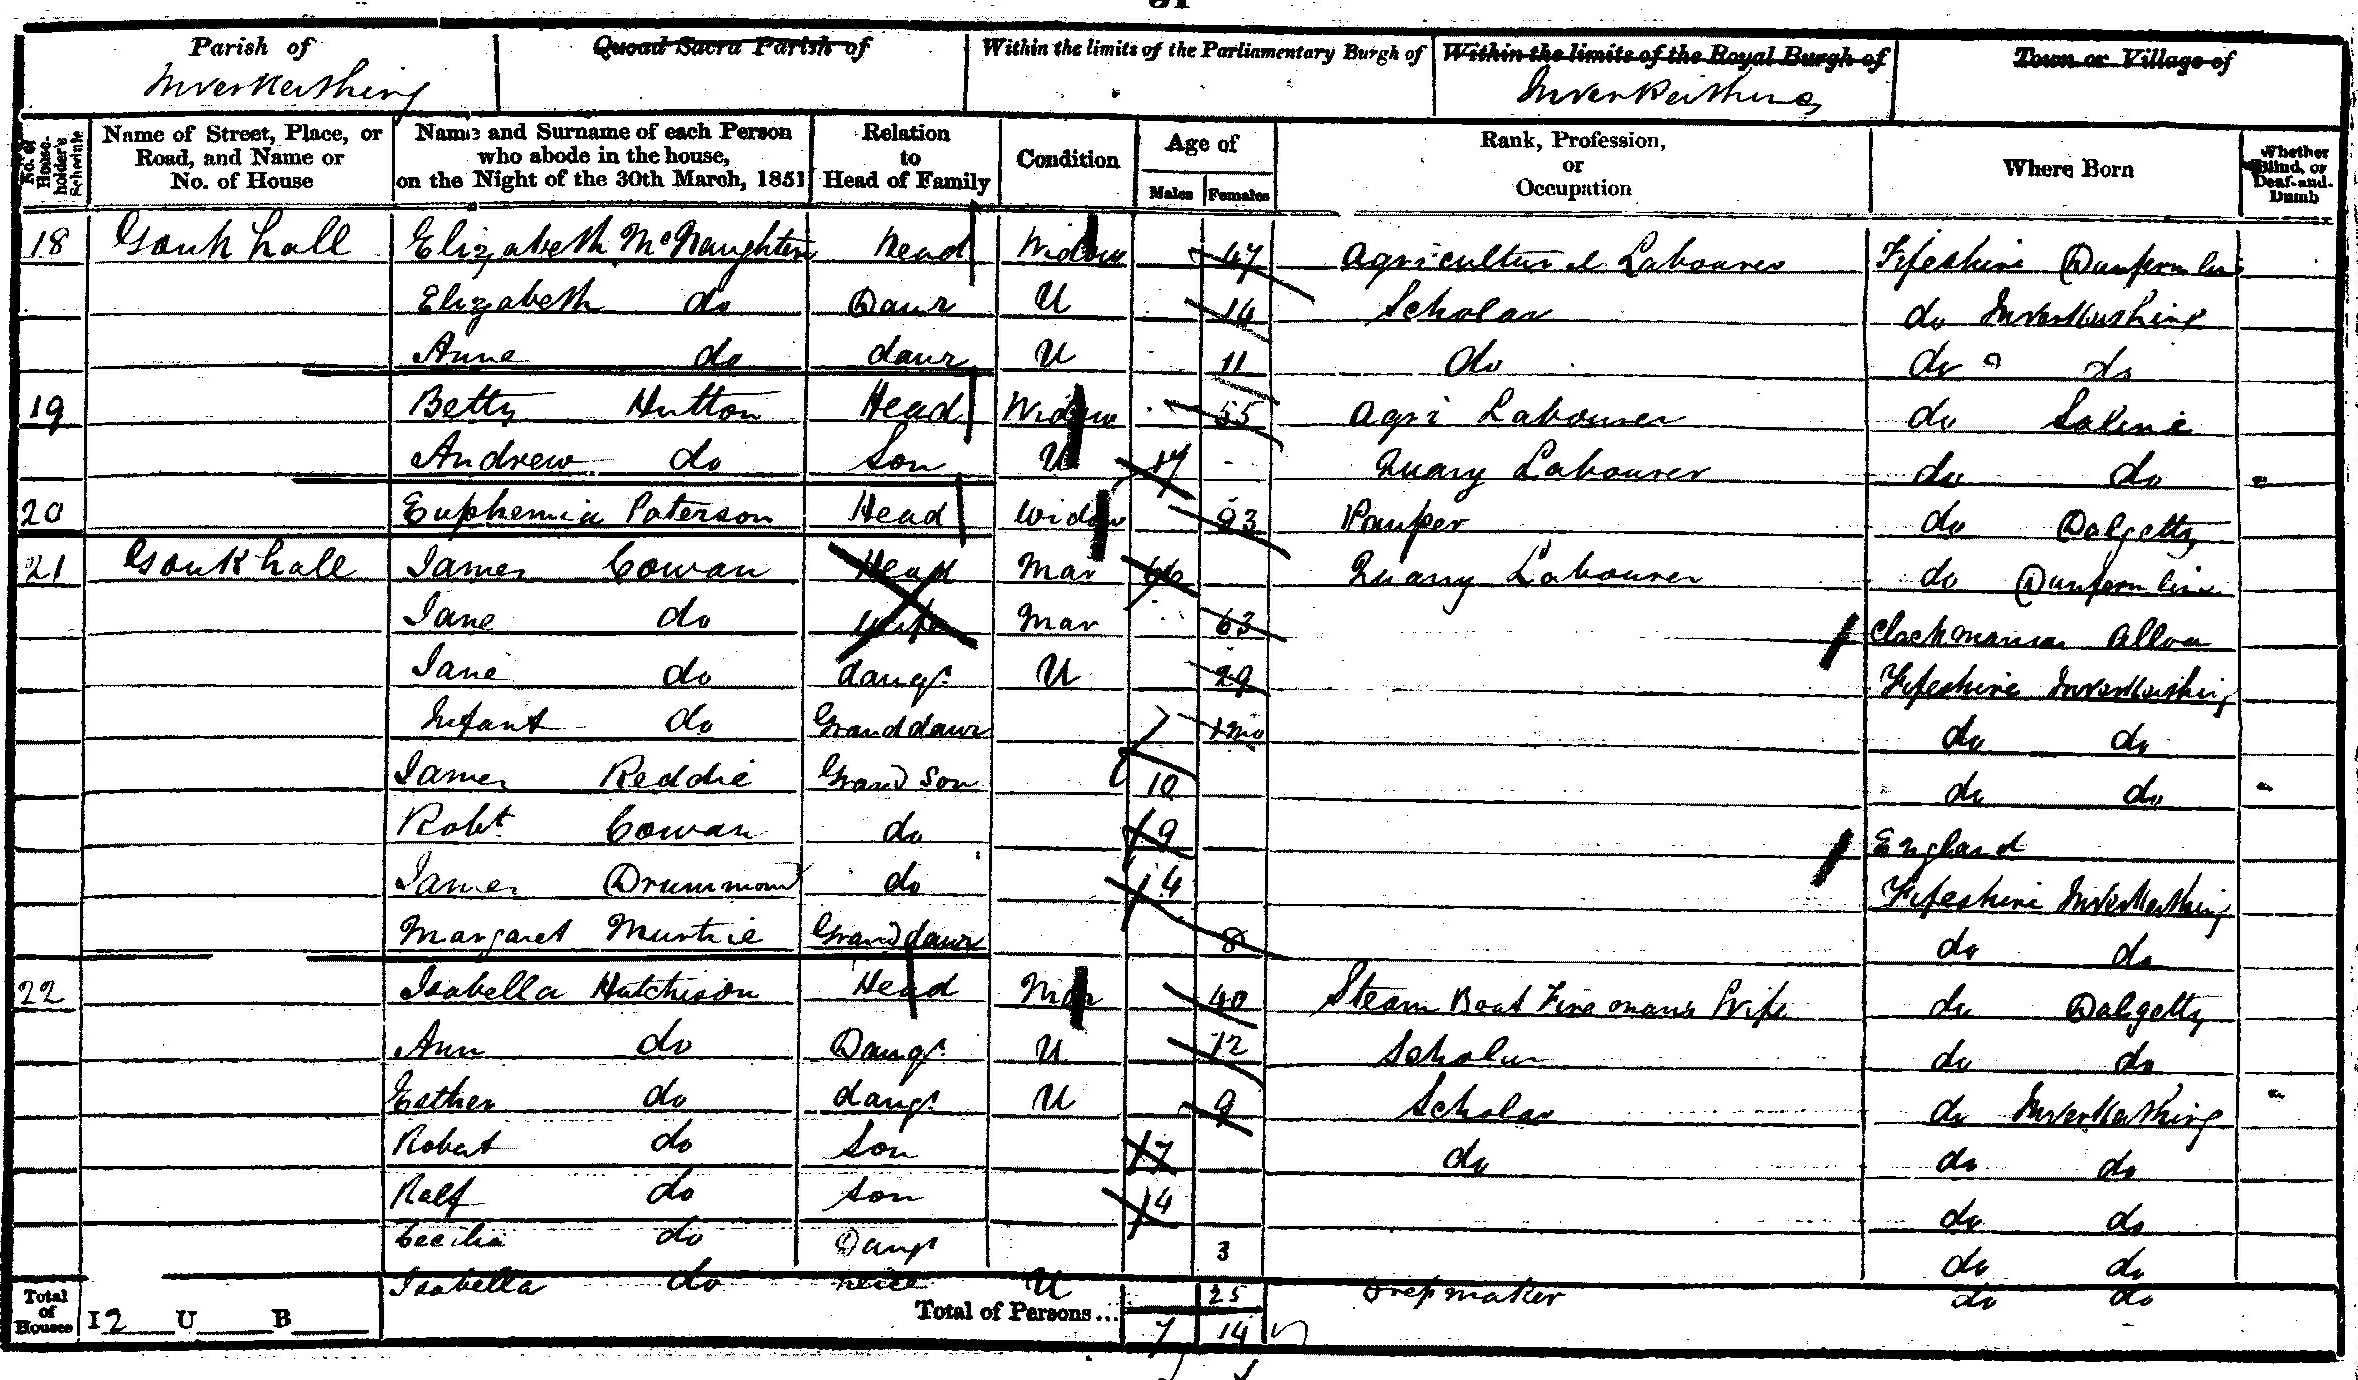 Parish of Quoad Sacra Parish of Within the limits of the Parliamentary Burgh of Within the limits of the Royal Burgh of Town or Village of
Inverkeithing Inverkeithing
No. of House-holder's Schedule Name of Street, Place, or Road, and Name or No. of House Name and Surname of each Person who abode in the house, on the Night of the 30th March, 1851 Relation to Head of Family Condition Age of Males Females Rank, Profession, or Occupation Where Born Whether Blind, or Deaf-and-Dumb
18 Goukhall Elizabeth McNaughton Head Widow 47 Agricultural Labourer Fifeshire Dunfermline
Elizabeth do Daur U Scholar do Inverkeithing
Anne do daur U 11 do do do
19 Betty Hutton Head Widow 55 Agri Labourer do Saline
Andrew do Son U 17 Quary Labourer do do
20 Euphemia Paterson Head Widow Pauper do Dalgetty
21 Goukhall James Cowan Head Mar 66 Quarry Labourer do Dunfermline
Jane do Wife Mar 63 Clackmanan Alloa
Jane do daugr U 29 Fifeshire Inverkeithing
Infant do Grand daur 1mo do do
James Reddie Grand Son 10 do do
Robt Cowan do 9 England
James Drummond do 4 Fifeshire Inverkeithing
Margaret Murtrie Grand daur 8 do do
22 Isabella Hutchison Head Mar 40 Steam Boat Firemans Wife do Dalgetty
Ann do Daugr U 12 Scholar do do
Esther do daugr U 9 Scholar do Inverkeithing
Robert do Son 7 do do do
Ralf do Son 4 do do
Cecilia do Daugr 3 do do
Isabella do neice U 25 Drepmaker do do
Total of Houses I 2 U B Total of Persons... 7 14